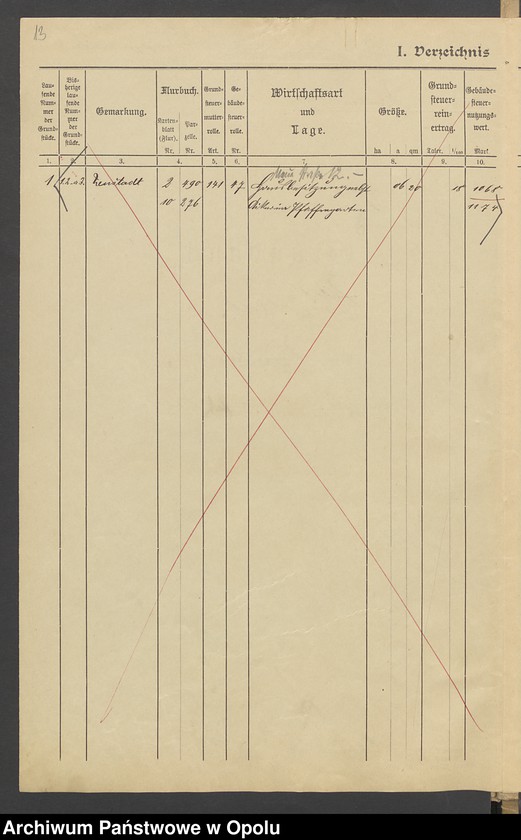 13
I. Verzeichnis
Lau-
fende
Num-
mer
der
Grund-
stücke.
Bis-
herige
lau-
fende
Num-
mer
der
Grund-
stücke.
Gemarkung.
Flurbuch.
Karten-
blatt
(Flur).
Nr.
Par-
zelle.
Nr.
Grund-
steuer-
mutter-
rolle.
Art.
Ge-
bäude-
steuer-
rolle.
Nr.
Wirtschaftsart
und
Lage.
Größe.
ha a qm
Grund-
steuer-
rein-
ertrag.
Taler. 1/100
Gebäude-
steuer-
nutzungs-
wert.
Mark
1. 2. 3. 4. 5. 6. 7. 8. 9. 10.
12.-
1 Neustadt 2 490 141 47 06 20 15 1065
10 276 1174
Archiwum Państwowe w Opolu